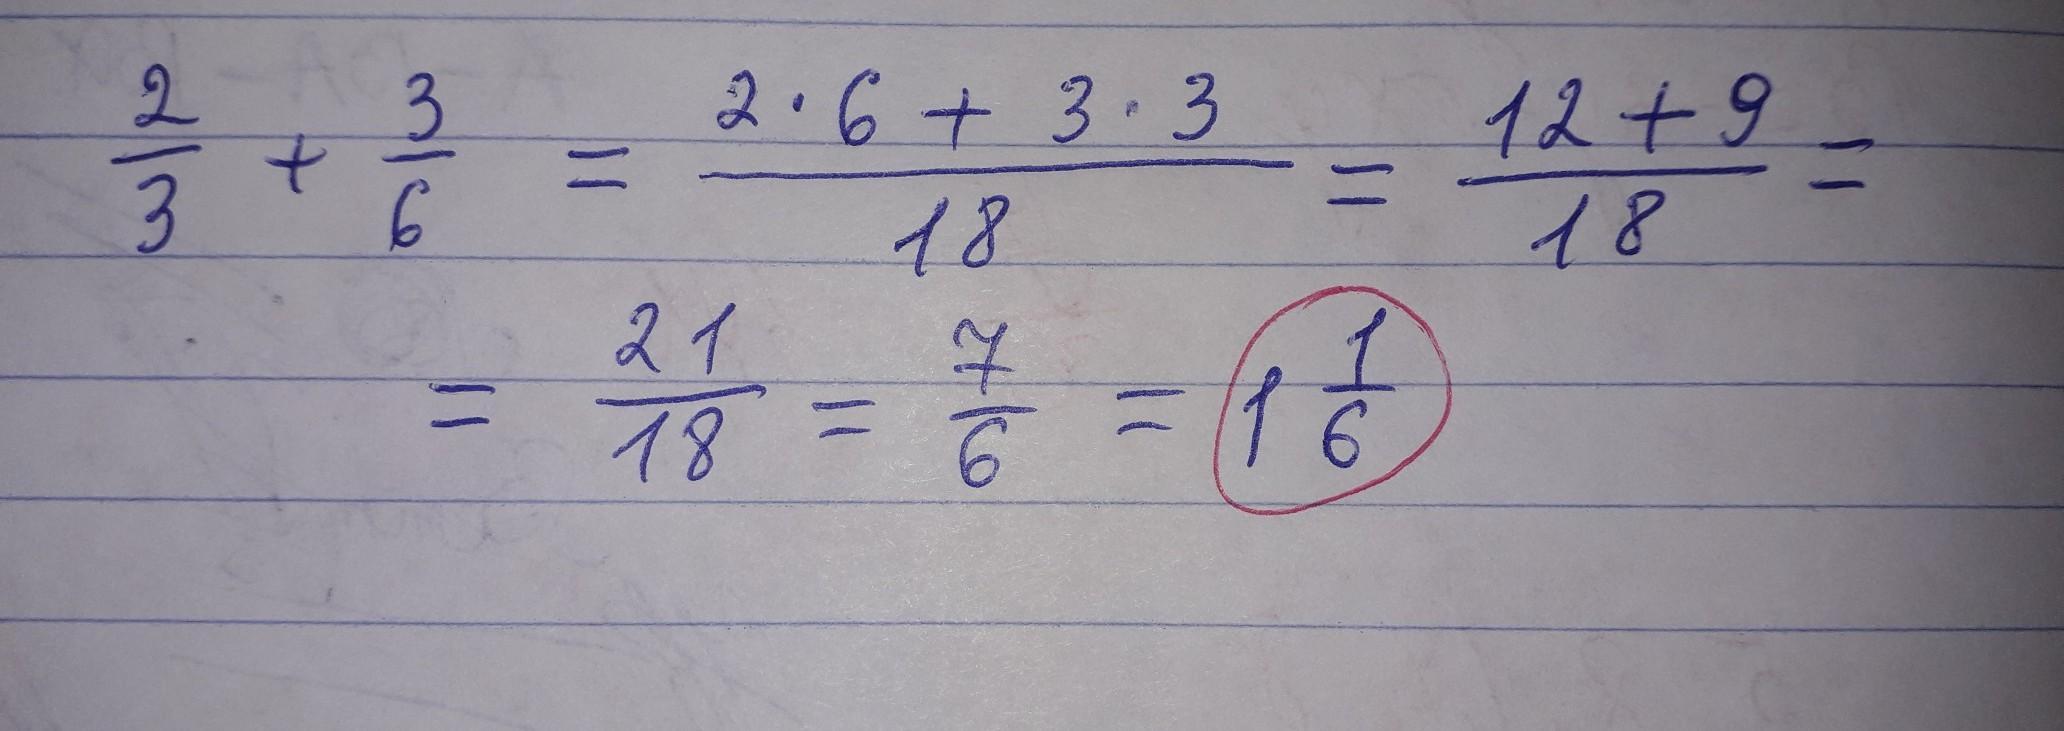 2/3 + 3/6 = (2·6 + 3·3)/18 = (12+9)/18 =
= 21/18 = 7/6 = 1 1/6